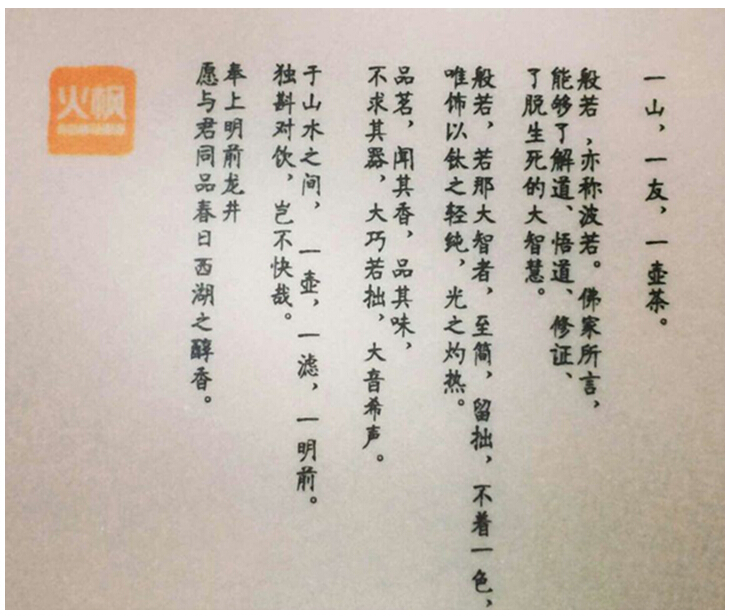 一山，一友，一壶茶。
般若，亦称波若。佛家所言，
能够了解道、悟道、修证、
了脱生死的大智慧。
般若，若那大智者，至简，留拙，不着一色，
唯饰以钛之轻纯，光之灼热。
品茗，闻其香，品其味，
不求其器，大巧若拙，大音希声。
于山水之间，一壶，一滤，一明前。
独斟对饮，岂不快哉。
奉上明前龙井
愿与君同品春日西湖之醇香。
火枫